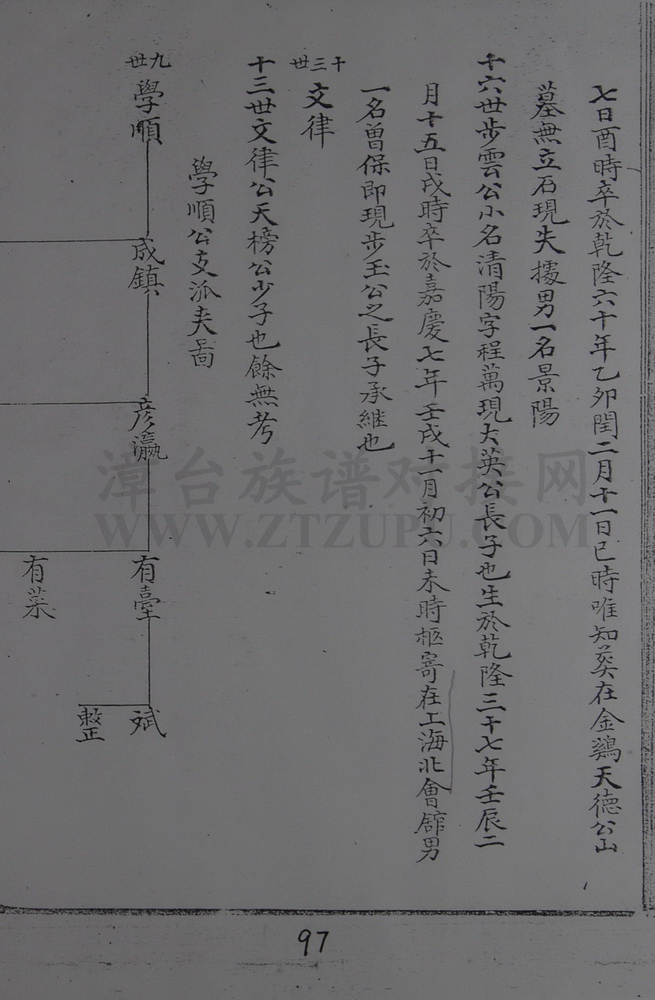 七日酉時卒於乾隆六十年乙卯閏二月十一日巳時唯知葬在金鷄天德公山
墓無立石現失據男一名景陽
十六世步雲公小名清陽字程萬現大英公長子也生於乾隆三十七年壬辰二
月十五日戌時卒於嘉慶七年壬戌十一月初六日未時柩寄在上海北會館男
一名曾保即現步玉公之長子承繼也
十三世
文律
十三世文律公天榜公少子也餘無考
學順公支派夫圖
九世
學順
成鎮
彥瀛
有臺
斌
整
有菜
漳台族谱对接网
WWW.ZTZUPU.COM
97